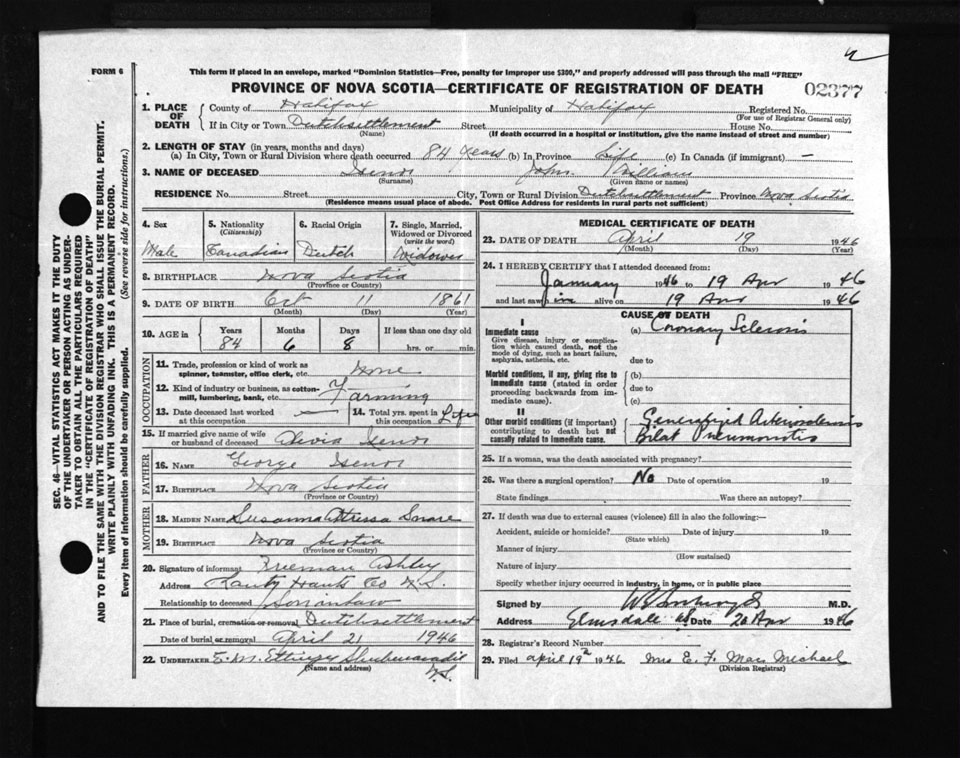 FORM 6
This form if placed in an envelope, marked "Dominion Statistics—Free, penalty for improper use $300," and properly addressed will pass through the mail "FREE"
PROVINCE OF NOVA SCOTIA—CERTIFICATE OF REGISTRATION OF DEATH 02377
1. PLACE OF DEATH
County of Halifax Municipality of Halifax Registered No.
(For use of Registrar General only)
If in City or Town Dutchsettlement Street House No.
(Name) (If death occurred in a hospital or institution, give the name instead of street and number)
2. LENGTH OF STAY (in years, months and days)
(a) In City, Town or Rural Division where death occurred 84 years (b) In Province Life (c) In Canada (if immigrant) —
3. NAME OF DECEASED Isenor John William
(Surname) (Given name or names)
RESIDENCE No. Street City, Town or Rural Division Dutchsettlement Province Nova Scotia
(Residence means usual place of abode. Post Office Address for residents in rural parts not sufficient)
4. Sex
Male
5. Nationality
(Citizenship)
Canadian
6. Racial Origin
Dutch
7. Single, Married, Widowed or Divorced
(write the word)
Widower
8. BIRTHPLACE Nova Scotia
(Province or Country)
9. DATE OF BIRTH Oct 11 1861
(Month) (Day) (Year)
10. AGE in
Years Months Days If less than one day old
84 6 8 hrs. or min.
OCCUPATION
11. Trade, profession or kind of work as
spinner, teamster, office clerk, etc. None
12. Kind of industry or business, as cotton-
mill, lumbering, bank, etc. Farming
13. Date deceased last worked
at this occupation —
14. Total yrs. spent in
this occupation Life
15. If married give name of wife
or husband of deceased Isenor
FATHER
16. NAME George Isenor
17. BIRTHPLACE Nova Scotia
(Province or Country)
MOTHER
18. MAIDEN NAME Susanna Snare
19. BIRTHPLACE Nova Scotia
(Province or Country)
20. Signature of informant Freeman Ashley
Address Hants Co N.S.
Relationship to deceased Son in law
21. Place of burial, cremation or removal Dutchsettlement
Date of burial or removal April 21 1946
22. UNDERTAKER E. M. Ettinger Shubenacadie
(Name and address) N.S.
MEDICAL CERTIFICATE OF DEATH
23. DATE OF DEATH April 19 1946
(Month) (Day) (Year)
24. I HEREBY CERTIFY that I attended deceased from:
January 1946 to 19 Apr 1946
and last saw him alive on 19 Apr 1946
CAUSE OF DEATH
I
Immediate cause (a) Coronary Sclerosis
Give disease, injury or complica-
tion which caused death, not the
mode of dying, such as heart failure,
asphyxia, asthenia, etc. due to
Morbid conditions, if any, giving rise to (b)
immediate cause (stated in order due to
proceeding backwards from im-
mediate cause). (c)
II
Other morbid conditions (if important) Generalized Arteriosclerosis
contributing to death but not
causally related to immediate cause. Bilat Pneumonitis
25. If a woman, was the death associated with pregnancy?
26. Was there a surgical operation? No Date of operation 19
State findings Was there an autopsy?
27. If death was due to external causes (violence) fill in also the following:—
Accident, suicide or homicide? Date of injury 19
(State which)
Manner of injury
(How sustained)
Nature of injury
Specify whether injury occurred in industry, in home, or in public place
Signed by M.D.
Address Elmsdale NS Date 20 Apr 1946
28. Registrar's Record Number
29. Filed April 19th 1946 Mrs E. F. MacMichael
(Division Registrar)
SEC. 46—VITAL STATISTICS ACT MAKES IT THE DUTY
OF THE UNDERTAKER OR PERSON ACTING AS UNDER-
TAKER TO OBTAIN ALL THE PARTICULARS REQUIRED
IN THE "CERTIFICATE OF REGISTRATION OF DEATH"
AND TO FILE THE SAME WITH THE DIVISION REGISTRAR WHO SHALL ISSUE THE BURIAL PERMIT.
WRITE PLAINLY WITH UNFADING INK. THIS IS A PERMANENT RECORD.
Every item of information should be carefully supplied. (See reverse side for instructions.)